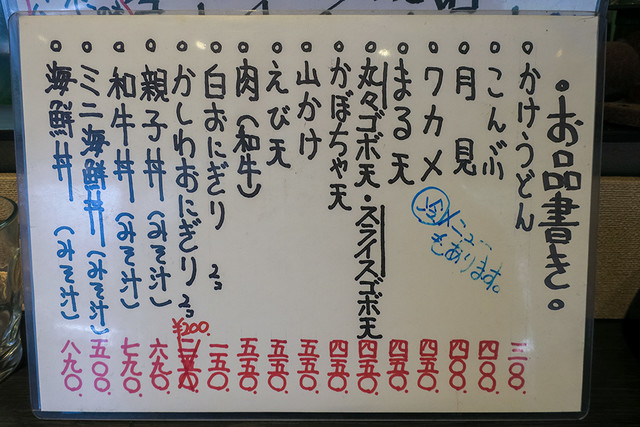 ・お品書き・
かけうどん 三〇〇.
こんぶ 四〇〇.
月見 四〇〇.
ワカメ 四五〇.
まる天 四五〇.
丸々ゴボ天・スライスゴボ天 四五〇.
かぼちゃ天 四五〇.
山かけ 五五〇.
えび天 五五〇.
肉(和牛) 五五〇.
白おにぎり 2コ 一五〇.
かしわおにぎり 2コ ¥200.
親子丼(みそ汁) 六九〇.
和牛丼(みそ汁) 七九〇.
ミニ海鮮丼(みそ汁) 五〇〇.
海鮮丼(みそ汁) 八九〇.
メニュー
もあります。